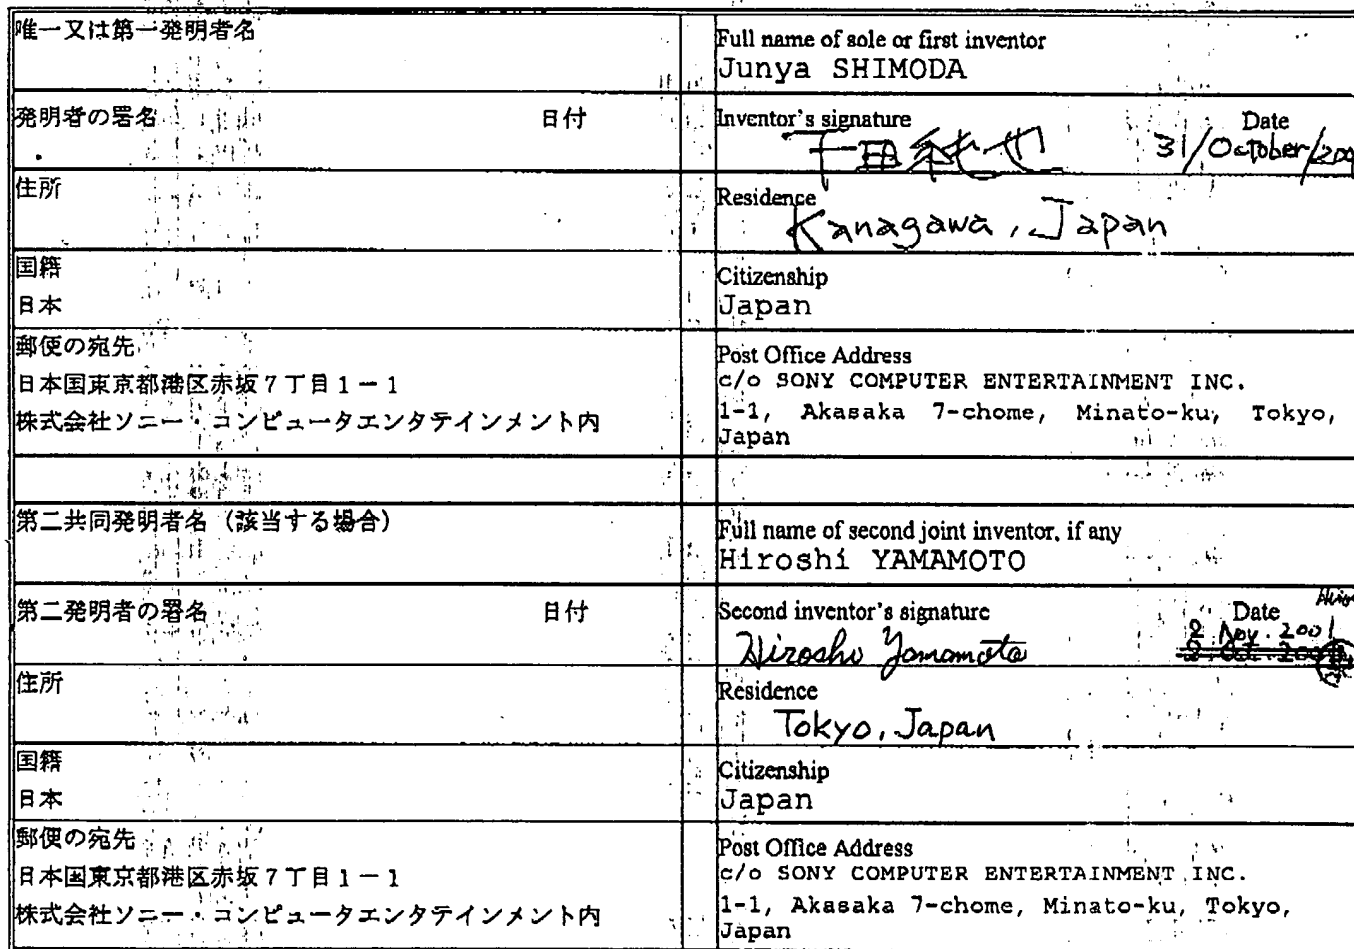 唯一又は第一発明者名
Full name of sole or first inventor
Junya SHIMODA
発明者の署名 日付
Inventor's signature Date
下田純也 31/October/200
住所
Residence
Kanagawa, Japan
国籍
日本
Citizenship
Japan
郵便の宛先
日本国東京都港区赤坂7丁目1-1
株式会社ソニー・コンピュータエンタテインメント内
Post Office Address
c/o SONY COMPUTER ENTERTAINMENT INC.
1-1, Akasaka 7-chome, Minato-ku, Tokyo,
Japan
第二共同発明者名 (該当する場合)
Full name of second joint inventor, if any
Hiroshi YAMAMOTO
第二発明者の署名 日付
Second inventor's signature Date
Hiroshi Yamamoto 2. Nov. 2001
住所
Residence
Tokyo, Japan
国籍
日本
Citizenship
Japan
郵便の宛先
日本国東京都港区赤坂7丁目1-1
株式会社ソニー・コンピュータエンタテインメント内
Post Office Address
c/o SONY COMPUTER ENTERTAINMENT INC.
1-1, Akasaka 7-chome, Minato-ku, Tokyo,
Japan